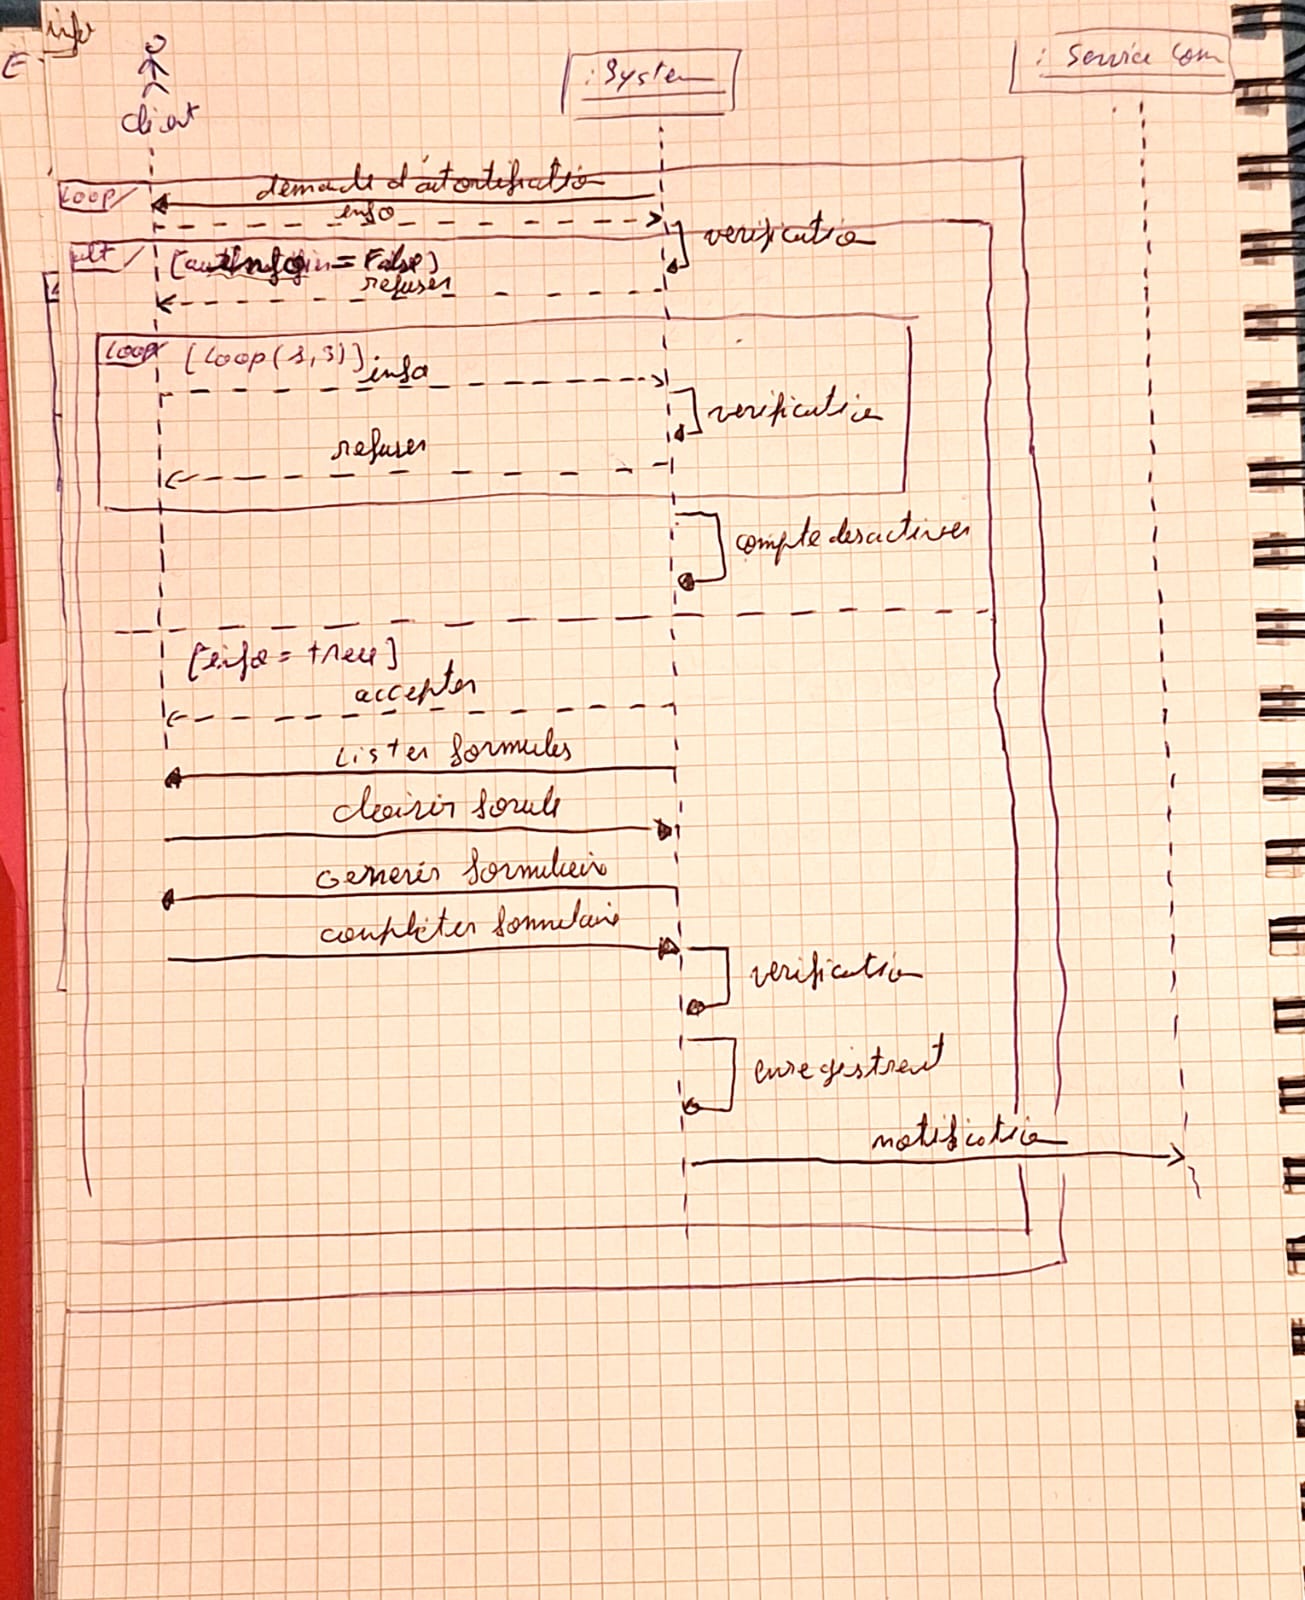 info
E
: System
: Service Com
client
loop
demande d'autortification
info
verification
alt
= False]
refuser
loop [loop(1,3)]
info
verification
refuser
compte desactiver
[info = true]
accepter
Lister formules
choisir formule
Generer formulaire
completer formulaire
verification
enregistrent
notification